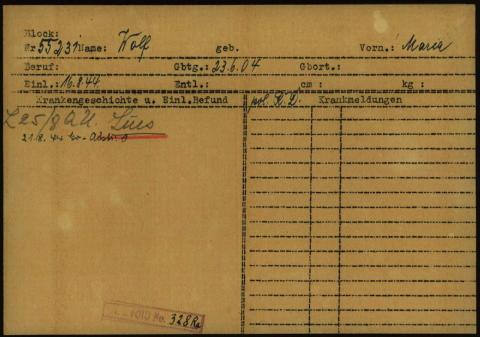 Block:
Nr 55231 Name: Wolf geb. Vorn.: Maria
Beruf: Gbtg.: 23.6.04 Gbort.:
Einl.: 16.8.44 Entl.: cm: kg:
Krankengeschichte u. Einl.Befund Krankmeldungen
Lues
21.12.44
No. 328